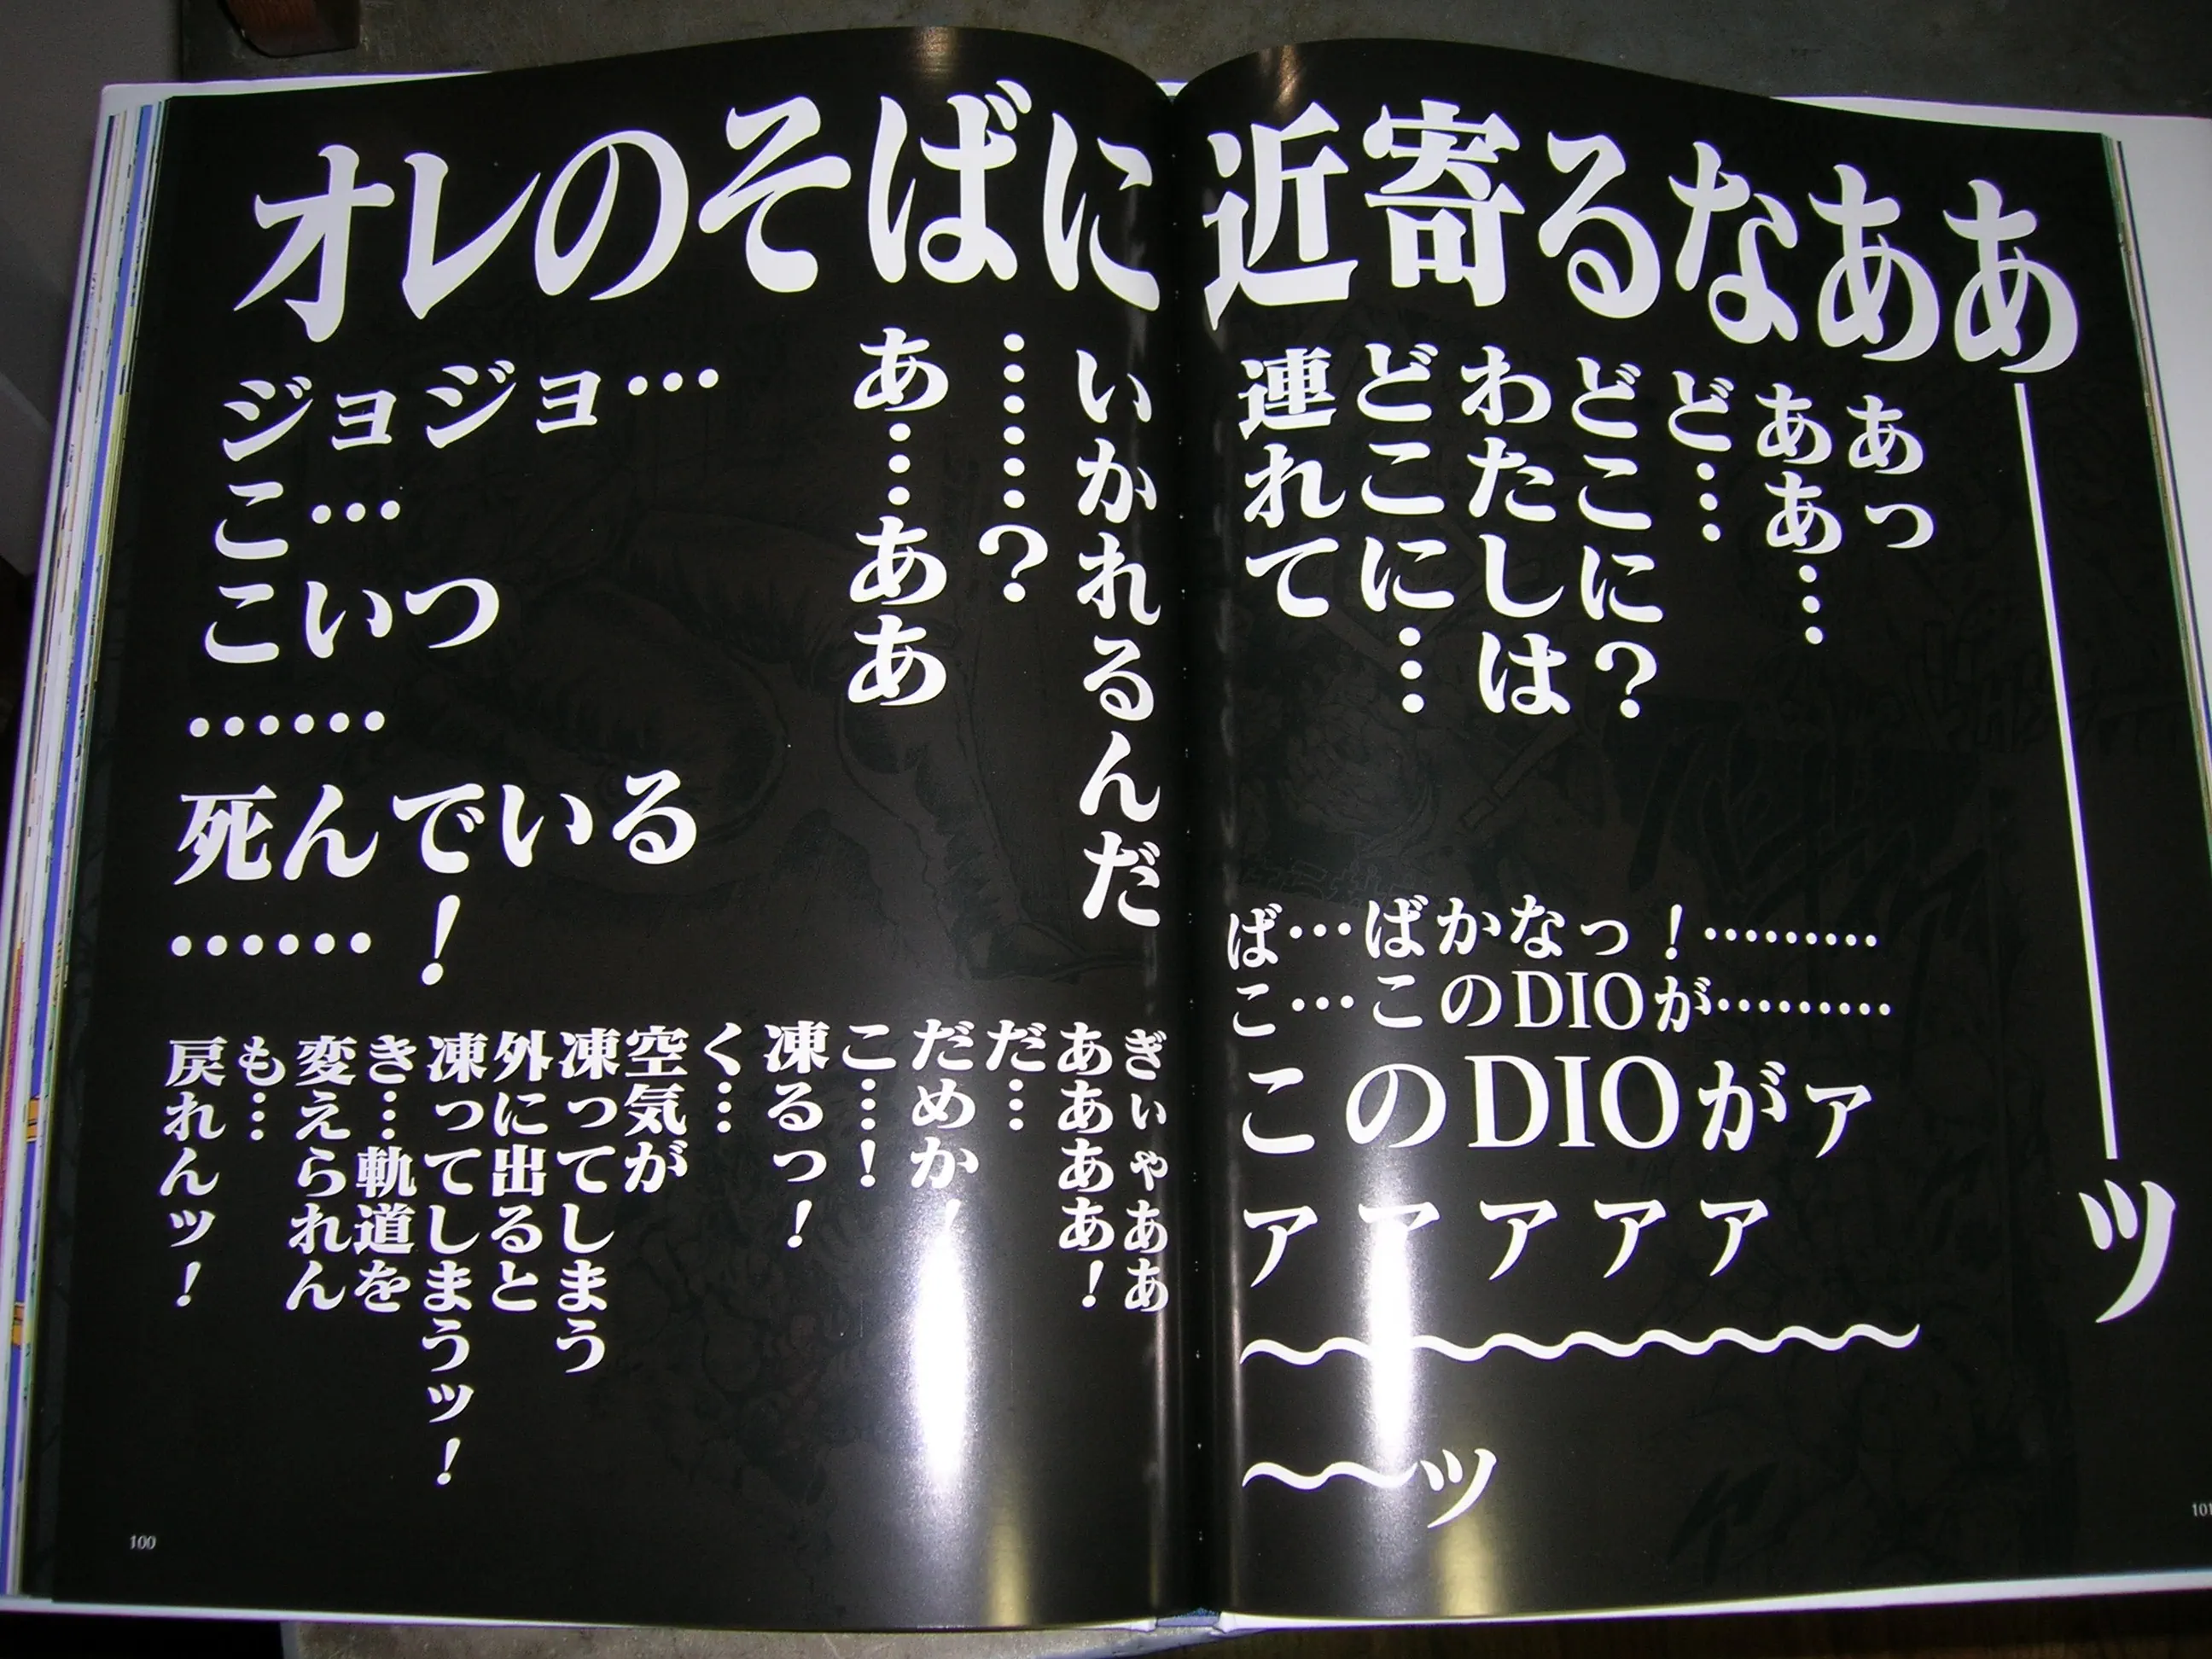 オレのそばに近寄るなああ――ッ
あっ
ああ…
ど…
どこに？
わたしは
どこに…
連れて
いかれるんだ
……？
あ…ああ
ジョジョ…
こ…
こいつ
……
死んでいる
……！
ば…ばかなっ！………
こ…このDIOが………
このDIOがァ
ァァァァァ
〜〜〜〜〜〜〜〜〜
〜〜ッ
ぎぃゃああぁ
ああああ！
だ…
だめか！
こ…！
凍るっ！
く…
空気が
凍ってしまう
外に出ると
凍ってしまうッ！
き…軌道を
変えられん
も…
戻れんッ！
100
101